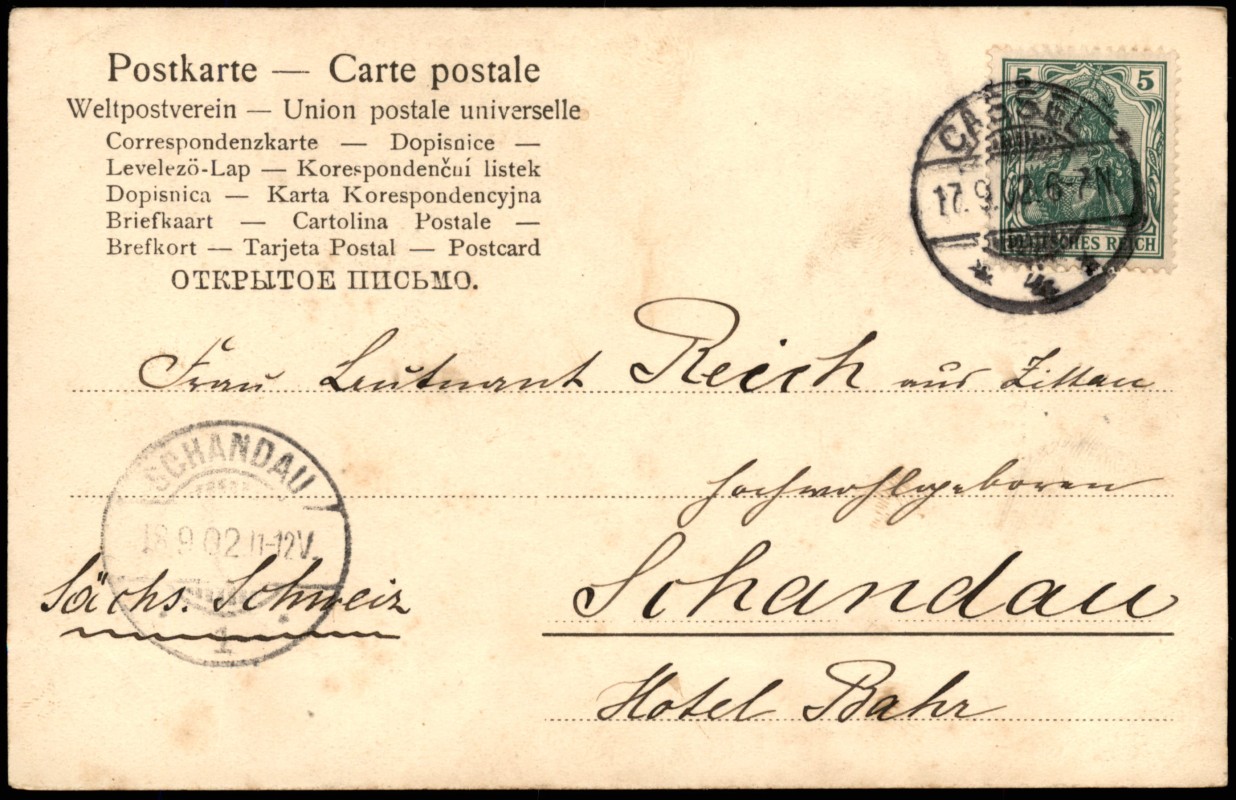 Postkarte — Carte postale
Weltpostverein — Union postale universelle
Correspondenzkarte — Dopisnice —
Levelező-Lap — Korespondenční listek
Dopisnica — Karta Korespondencyjna
Briefkaart — Cartolina Postale —
Brefkort — Tarjeta Postal — Postcard
ОТКРЫТОЕ ПИСЬМО.
5 5
DEUTSCHES REICH
CASSEL
17. 9. 02. 6-7N.
Frau Leutnant Reich aus Zittau
Hochwohlgeboren
SCHANDAU
18. 9 02. 11-12V.
1
Sächs. Schweiz
Schandau
Hotel Bahr